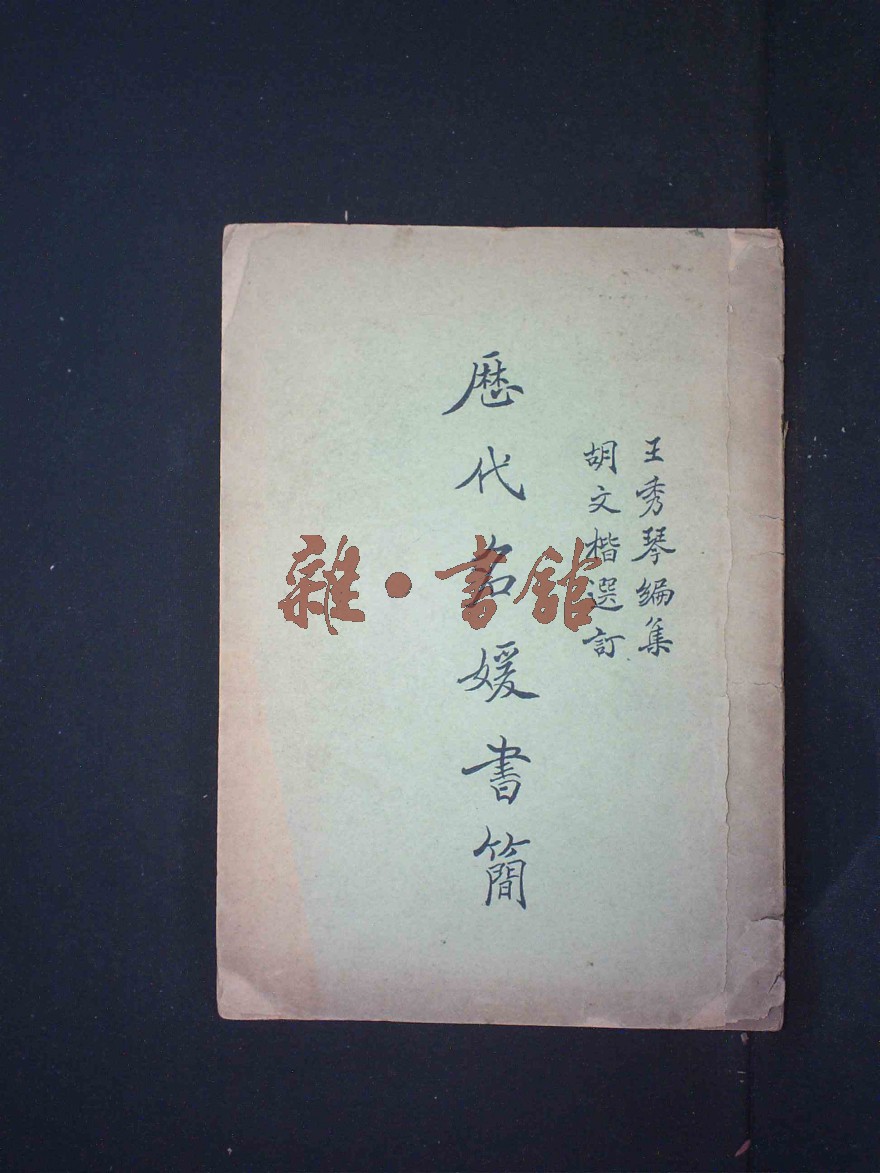 王秀琴編集
胡文楷選訂
歷代名媛書簡
雜·書館